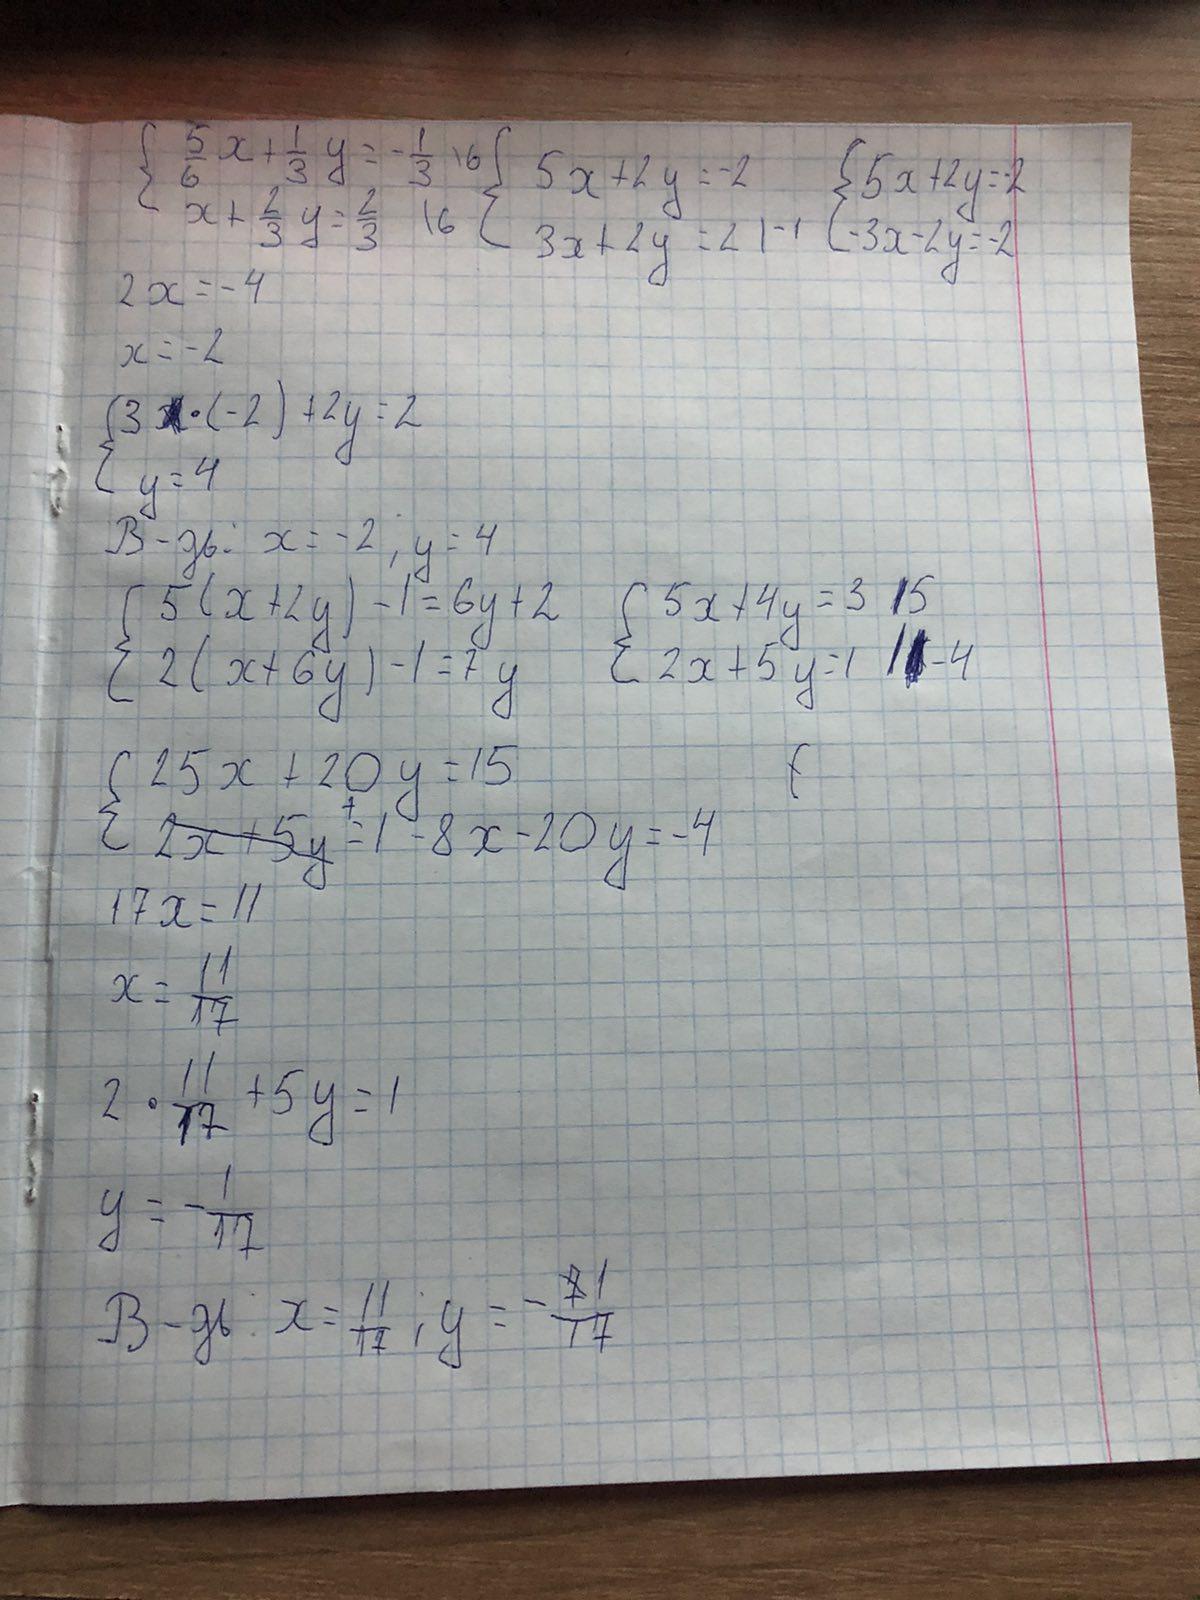 { 5/6 x + 1/3 y = -1/3 |6 { 5x+2y=-2 { 5x+2y=-2
x + 2/3 y = 2/3 |6 3x+2y=2 |-1 -3x-2y=-2
2x=-4
x=-2
{ 3·(-2)+2y=2
y=4
В-дь: x=-2; y=4
{ 5(x+2y)-1=6y+2 { 5x+4y=3 |5
2(x+6y)-1=7y 2x+5y=1 |-4
{ 25x+20y=15 {
2x+5y=1 -8x-20y=-4
17x=11
x=11/17
2·11/17+5y=1
y=-1/17
В-дь: x=11/17; y=-1/17